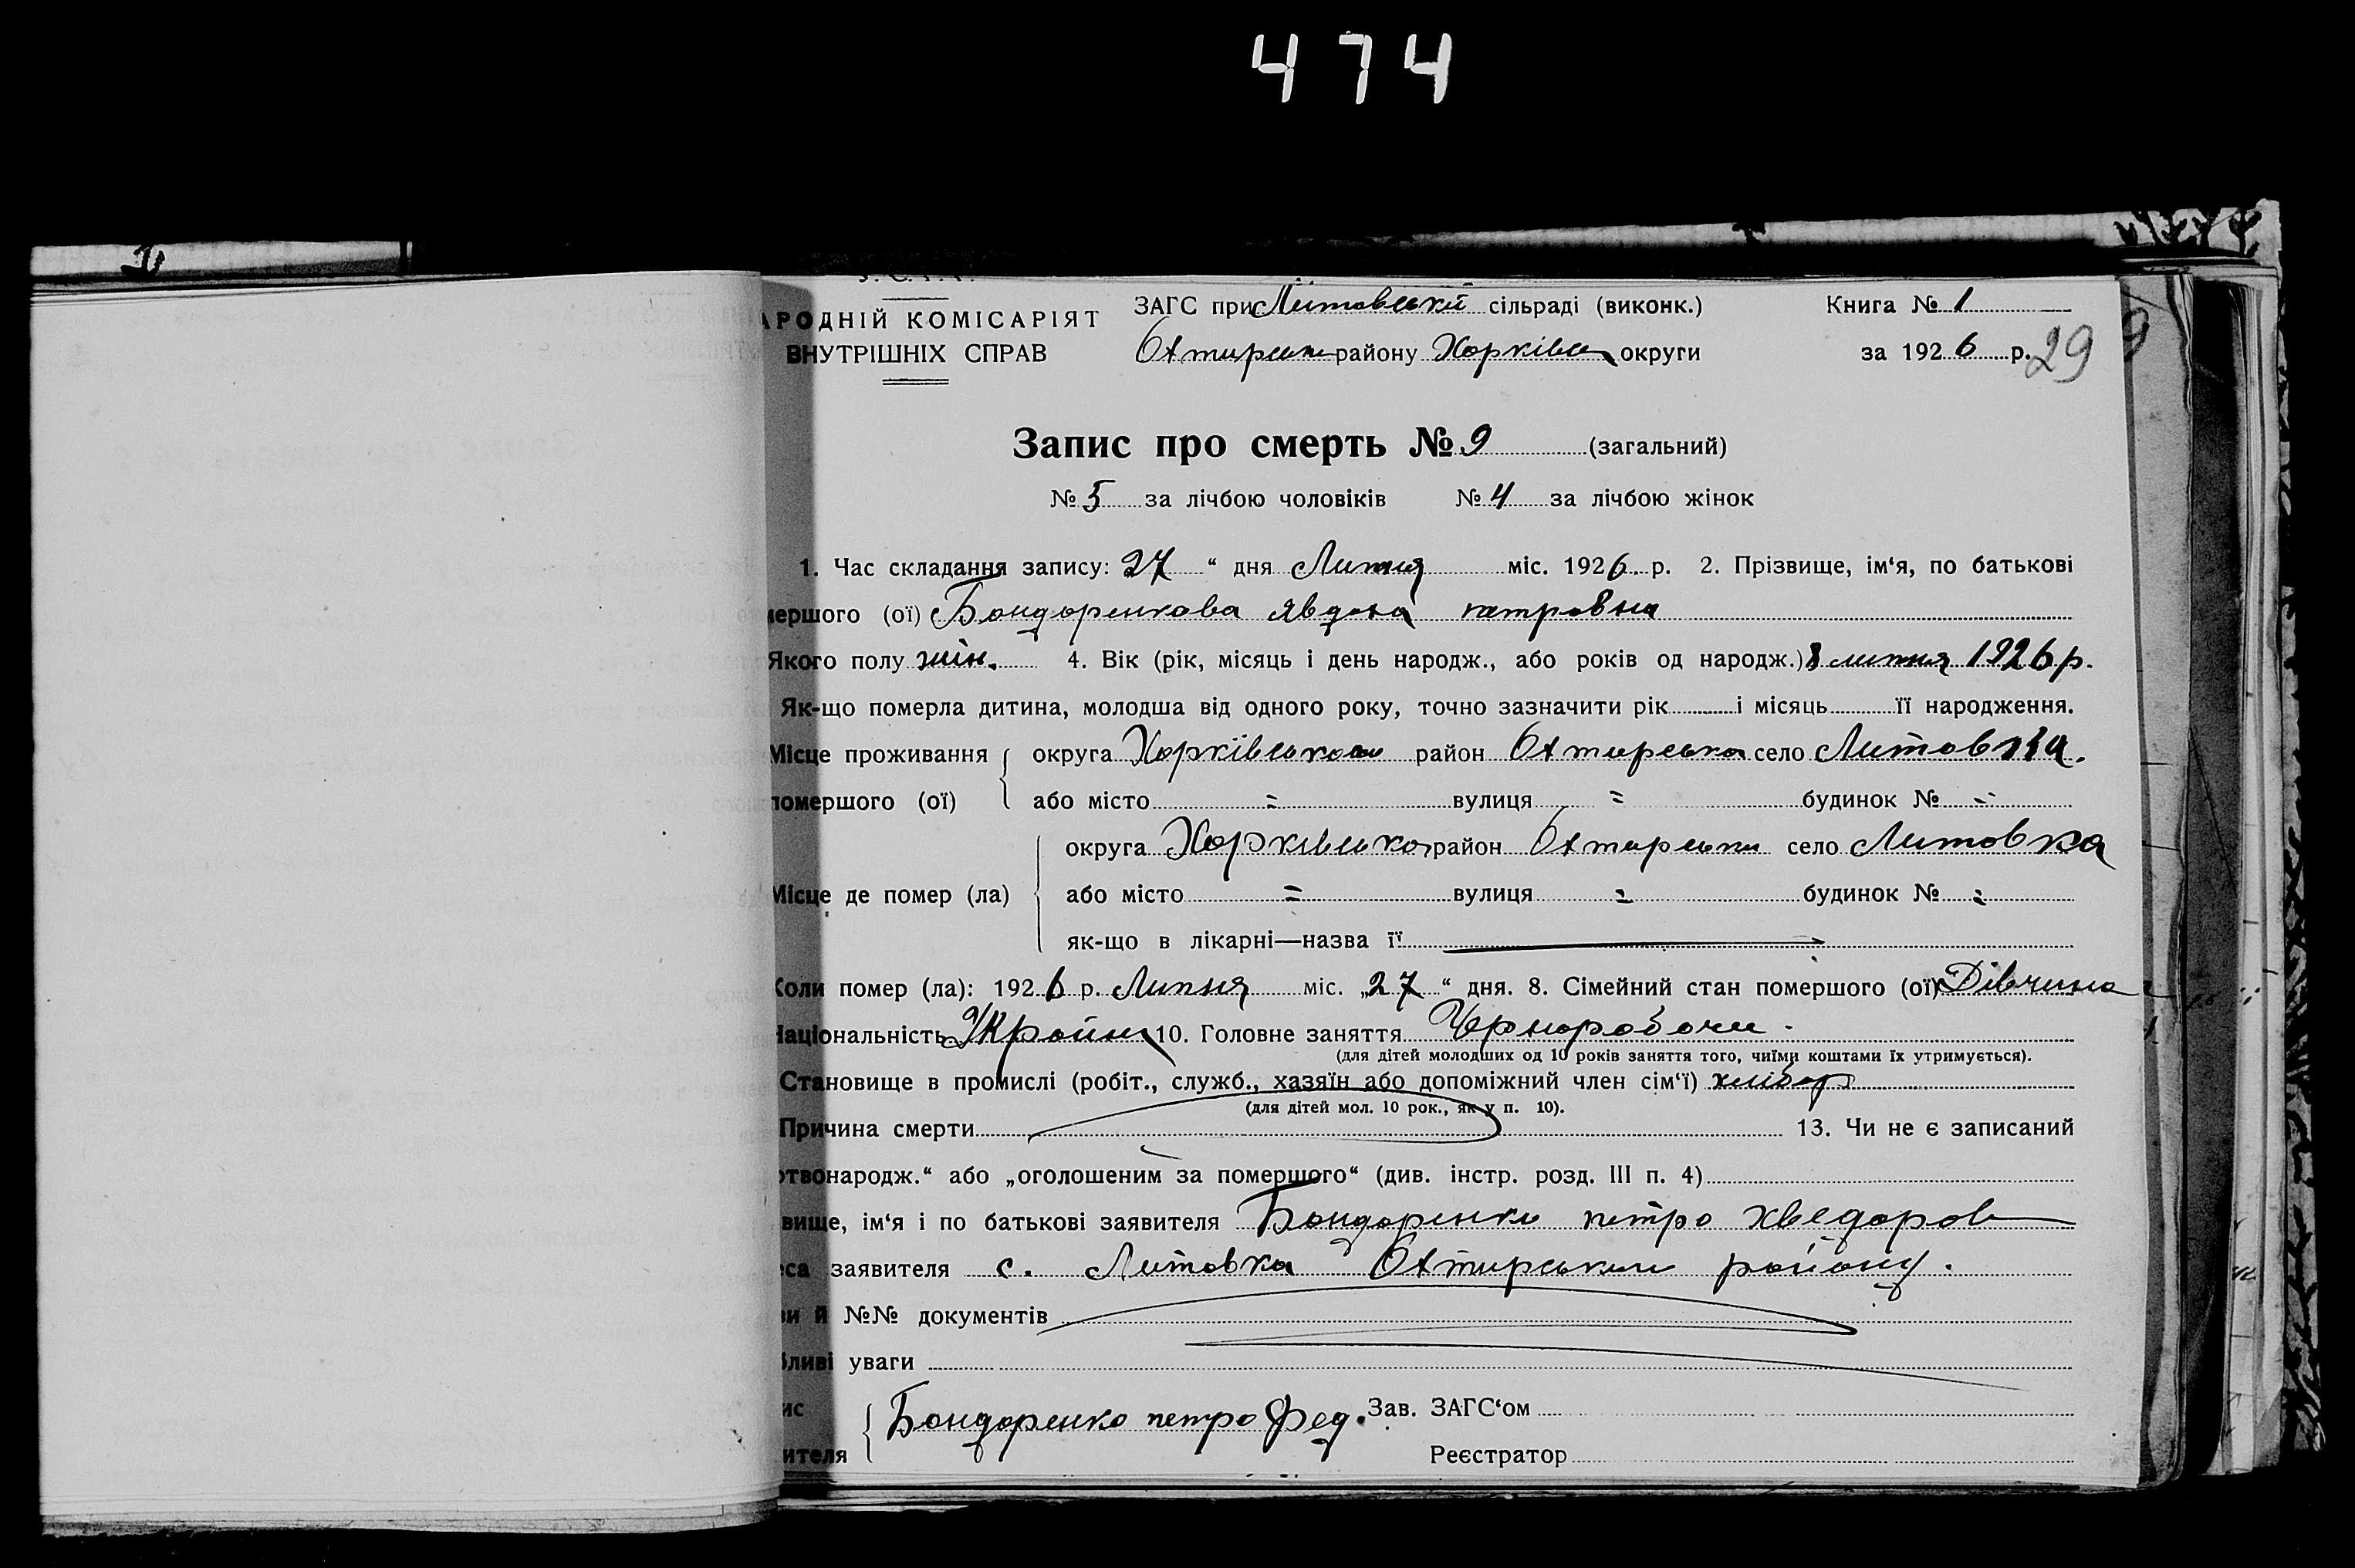 474
У. С. Р. Р.
АРОДНІЙ КОМІСАРІЯТ
ВНУТРІШНІХ СПРАВ
ЗАГС при Литовській сільраді (виконк.)
Охтирськ району Харківськ округи
Книга № 1
за 1926 р.
29
Запис про смерть № 9 (загальний)
№ 5 за лічбою чоловіків № 4 за лічбою жінок
1. Час складання запису: 27 “ дня Липня міс. 1926 р. 2. Прізвище, ім‘я, по батькові
мершого (ої) Бондоренкова явдоха петровна
Якого полу жін. 4. Вік (рік, місяць і день народж., або років од народж.) 8 липня 1926 р.
Як-що померла дитина, молодша від одного року, точно зазначити рік і місяць її народження.
Місце проживання округа Харківською район Охтирська село Литовка.
помершого (ої) або місто = вулиця = будинок № =
округа Харківсько район Охтирськи село Литовка
Місце де помер (ла) або місто = вулиця = будинок № =
як-що в лікарні—назва її
Коли помер (ла): 1926 р. Липня міс. „27“ дня. 8. Сімейний стан помершого (ої) Дівчина
Національність Україн 10. Головне заняття Чорноробочи
(для дітей молодших од 10 років заняття того, чиїми коштами їх утримується).
Становище в промислі (робіт., служб., хазяїн або допоміжний член сім‘ї) хлібор
(для дітей мол. 10 рок., як у п. 10).
Причина смерти 13. Чи не є записаний
ртвонародж.“ або „оголошеним за помершого“ (див. інстр. розд. III п. 4)
вище, ім‘я і по батькові заявителя Бондоренко петро хведоров
еса заявителя с. Литовка Охтирськи району.
ви й №№ документів
бливі уваги
ис
ителя Бондоренко петро Фед. Зав. ЗАГС‘ом
Реєстратор